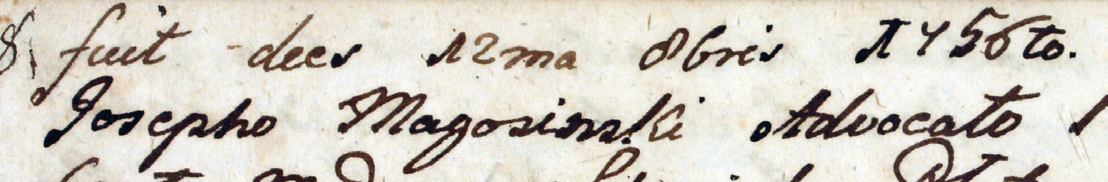 8 fuit dies 12ma 8bris 1756to.
Josepho Magosinski Advocato